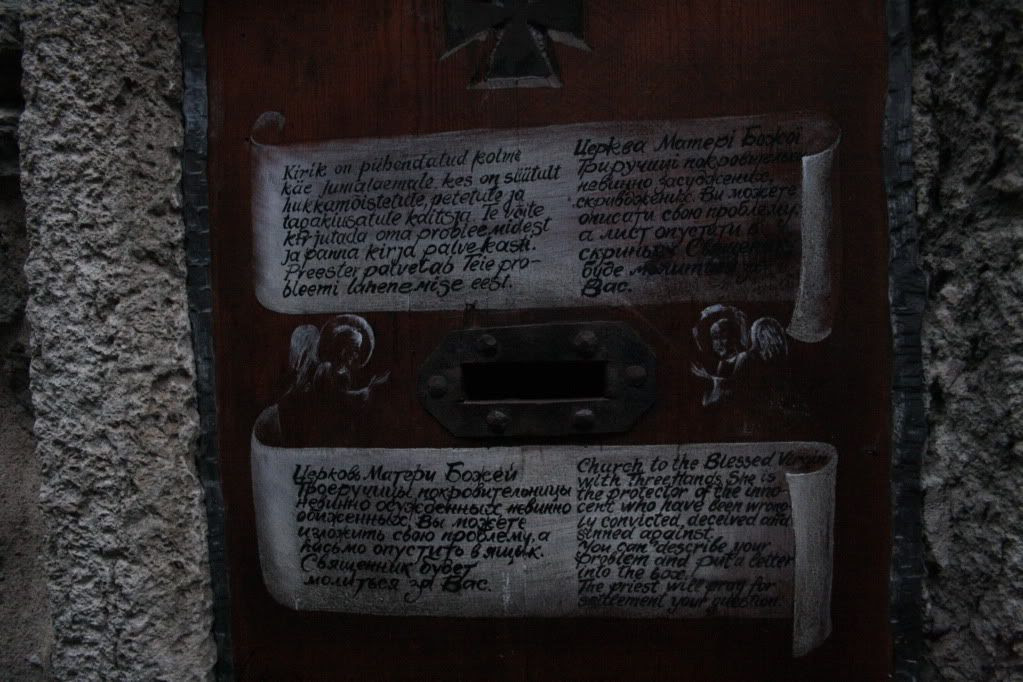 Kirik on pühendatud kolme
käe Jumalaemale, kes on süütult
hukkamõistetute, petetute ja
tagakiusatute kaitsja. Te võite
kirjutada oma probleemidest
ja panna kirja palve kasti.
Preester palvetab Teie pro-
bleemi lahenemise eest.
Церква Матері Божої
Триручиці покровительки
невинно засуджених,
скривджених. Ви можете
описати свою проблему,
а лист опустити в
скриньку. Священик
буде молитися за
Вас.
Церковь Матери Божей
Троеручицы покровительницы
невинно осужденных невинно
обиженных, Вы можете
изложить свою проблему, а
письмо опустить в ящык.
Священник будет
молиться за Вас.
Church to the Blessed Virgin
with three Hands. She is
the protector of the inno-
cent who have been wrong-
ly convicted, deceived and
sinned against.
You can describe your
problem and put a letter
into the box.
The priest will pray for
settlement your question.